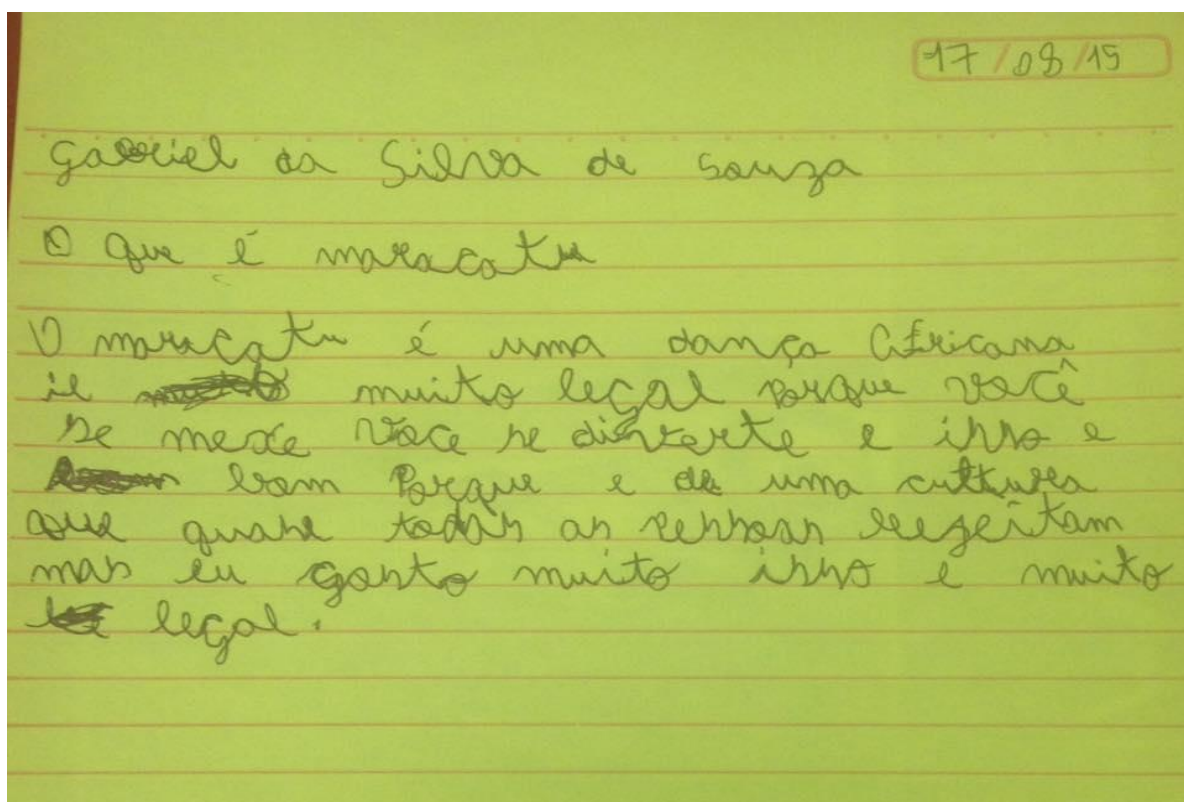 17/08/15
Gabriel da Silva de Souza
O que é maracatu
O maracatu é uma dança Africana
ie muito legal porque você
se mexe voce se disverte e isso e
bom Porque e de uma cultura
que quase todas as pessoas regeitam
mas eu gosto muito isso e muito
legal.